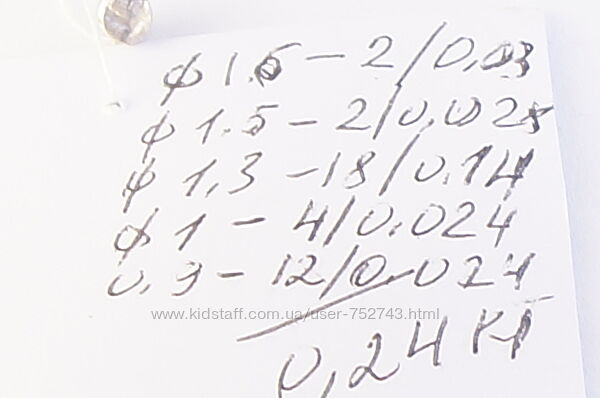 ф 1.6 – 2/0,03
ф 1.5 – 2/0,028
ф 1,3 – 18/0.14
ф 1 – 4/0.024
0,9 – 12/0.024
www.kidstaff.com.ua/user-752743.html
0,24 кт